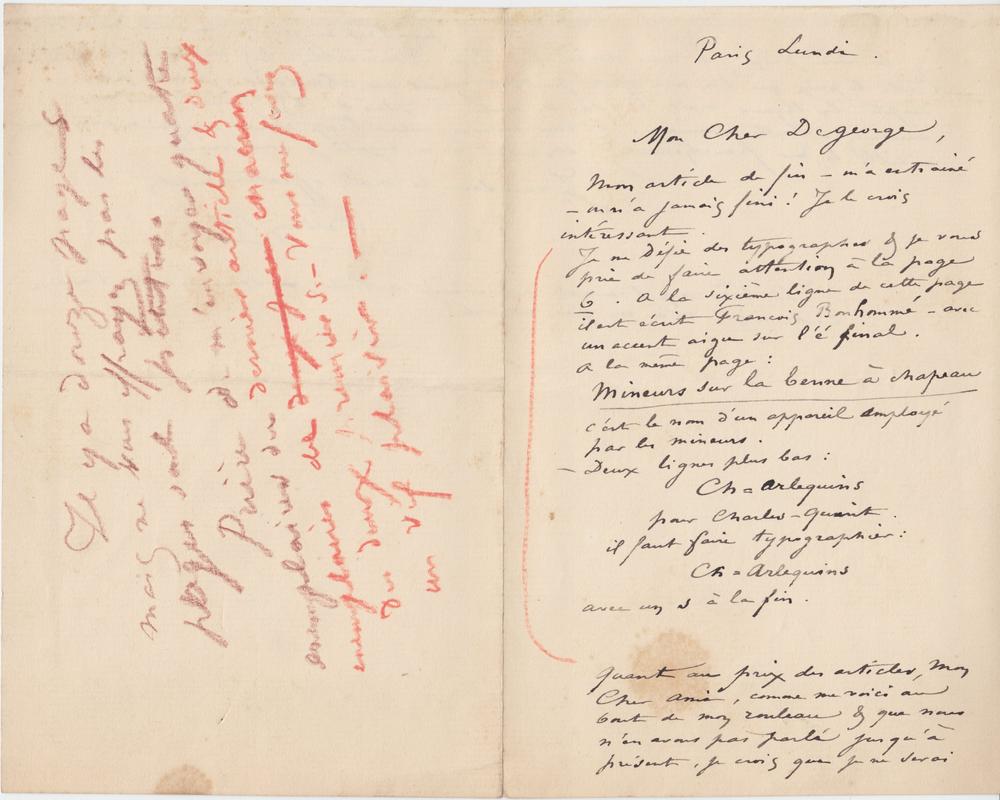 Paris Lundi.
Mon Cher Degeorge,
Mon article de fin – m'a entrainé
– on n'a jamais fini! Je le crois
intéressant.
Je me défie des typographes & je vous
prie de faire attention à la page
6. A la sixième ligne de cette page
il est écrit François Bonhommé – avec
un accent aigu sur l'é final.
A la même page:
Mineurs sur la benne à chapeau
c'est le nom d'un appareil employé
par les mineurs.
– Deux lignes plus bas:
Ch=Arlequins
pour Charles-Quint.
il faut faire typographier:
Ch=Arlequins
avec un s à la fin.
Quant au prix des articles, mon
Cher ami, comme me voici au
bout de mon rouleau & que nous
n'en avons pas parlé jusqu'à
présent, je crois que je ne serai
Il y a douze pages
mais ne vous effrayez pas les
pages sont
Prière de m'envoyer quatre
exemplaires du dernier article & deux
exemplaires de chacun
des deux premiers. – Vous me ferez
un vif plaisir. –